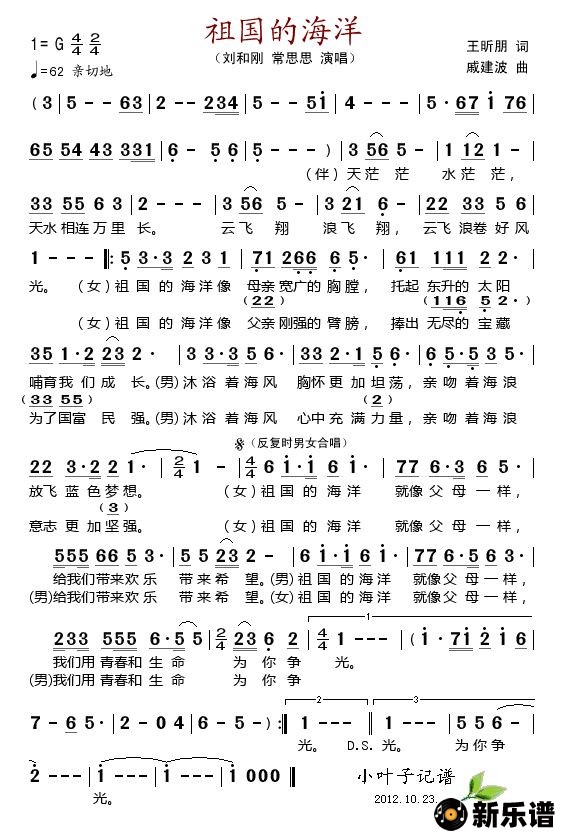 祖国的海洋
1=G 4/4 2/4
（刘和刚 常思思 演唱）
王昕朋 词
♩=62 亲切地
戚建波 曲
(3 5 - - 63 2 - - 234 5 - - 51 4 - - 5· 67 1 76
65 54 43 331 6 - 56 5 - - -) 3 56 5 - 1 12 1 -
（伴）天茫茫 水茫茫，
33 55 63 2 - - - 5 23 5 - 3 21 6 - 22 33 55 6
天水相连万里 长。 云飞 翔 浪飞 翔， 云飞浪卷好风
1 - - - 5 3·3 23 1 71 266 6 5· 61 111 22·
光。 （女）祖 国 的 海洋像 母亲宽广的胸膛， 托起 东升的 太阳
(22) (116 5 2·)
（女）祖 国 的 海洋像 父亲刚强的臂膀， 捧出 无尽的 宝藏
35 1·2 23 2· 3 3·3 56 5 33 2·1 6 5· 6 1·6 1 2
哺育我们成 长。(男)沐浴着海风 胸怀更加坦荡，亲吻着海浪
(33 55) (2)
为了国富 民 强。(男)沐浴着海风 心中充满力量，亲吻着海浪
𝄋（反复时男女合唱）
22 3·2 2 1· 2/4 1 - 4/4 6 1·1 6 1 77 6·3 6 5·
放飞 蓝色梦想。 （女）祖国的海洋 就像父母一样，
(3)
意志更加坚强。 （女）祖国的海洋 就像父母一样，
555 66 5 3· 3·5 5 23 2· 6 1·1 6 1 77 6·5 6 3·
给我们带来欢乐 带来希 望。(男)祖国的海洋 就像父母一样，
(男)给我们带来欢乐 带来希 望。(女)祖国的海洋 就像父母一样，
1
233 555 6·5 5 2/4 23 6 2 4/4 1 - - - (1· 71 2 1 6
我们用青春和生命 为 你 争 光。
(男)我们用青春和生命 为 你 争
2 3
7 - 6 5· 2 - 0 4 6 - - 5 5 - - -) 1 - - - 1 - - - 5 5 6 -
光。 D.S. 光。 为你争
2 - - - 1 - - - 1 - - - 1 000
光。
小叶子记谱
2012.10.23.
新乐谱